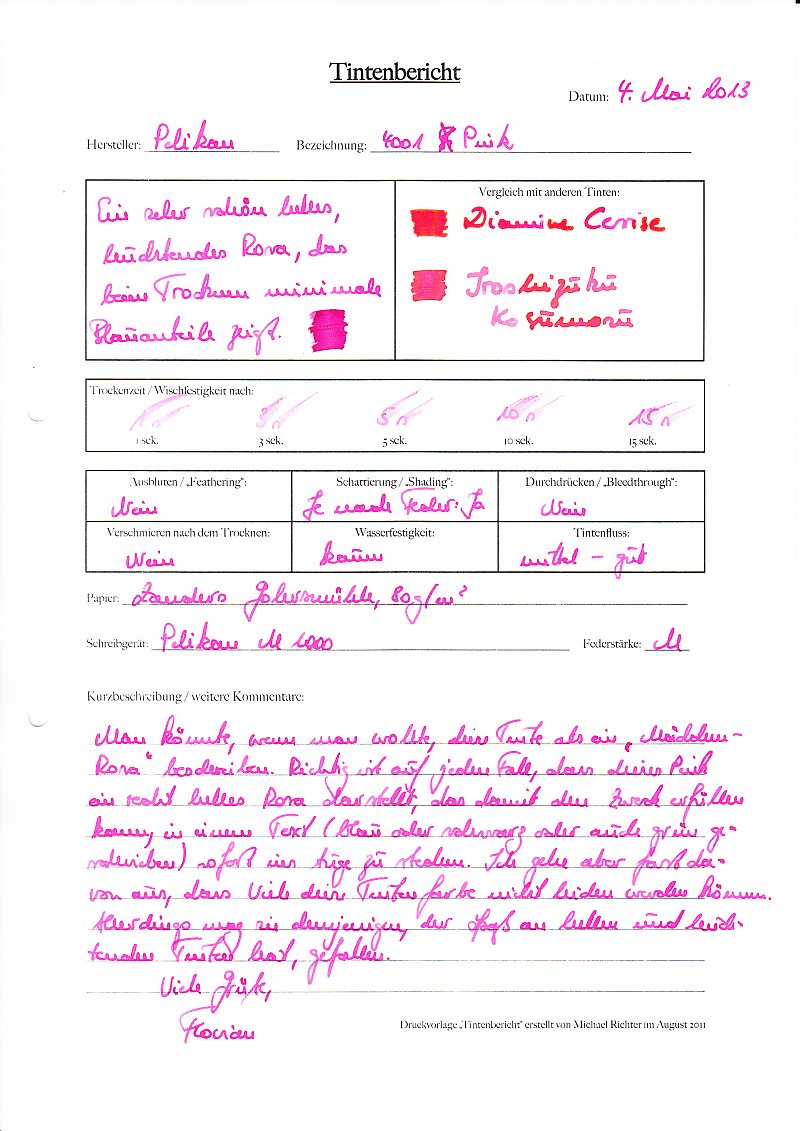 Tintenbericht
Datum: 4. Mai 2013
Hersteller: Pelikan Bezeichnung: 4001 Pink
Ein sehr schön helles,
leuchtendes Rosa, das
beim Trocknen minimale
Blauanteile zeigt.
Vergleich mit anderen Tinten:
Diamine Cerise
Iroshizuku
Kosumosu
Trockenzeit / Wischfestigkeit nach:
1 3 5 10 15
1 sek. 3 sek. 5 sek. 10 sek. 15 sek.
Ausbluten / „Feathering": Schattierung / „Shading": Durchdrücken / „Bleedthrough":
Nein Je nach Feder: Ja Nein
Verschmieren nach dem Trocknen: Wasserfestigkeit: Tintenfluss:
Nein kaum mittel – gut
Papier: Zanders Gohrsmühle, 80g/m²
Schreibgerät: Pelikan M 1000 Federstärke: M
Kurzbeschreibung / weitere Kommentare:
Man könnte, wenn man wollte, diese Tinte als ein „Mädchen-
Rosa" beschreiben. Richtig ist auf jeden Fall, dass dieses Pink
ein recht helles Rosa darstellt, das damit den Zweck erfüllen
kann, in einem Text (blau oder schwarz oder auch grün ge-
schrieben) sofort ins Auge zu stechen. Ich gehe aber fast da-
von aus, dass Viele diese Tintenfarbe nicht leiden werden können.
Allerdings mag sie demjenigen, der Spaß an hellen und leuch-
tenden Tinten hat, gefallen.
Viele Grüße,
Florian
Druckvorlage „Tintenbericht" erstellt von Michael Richter im August 2011